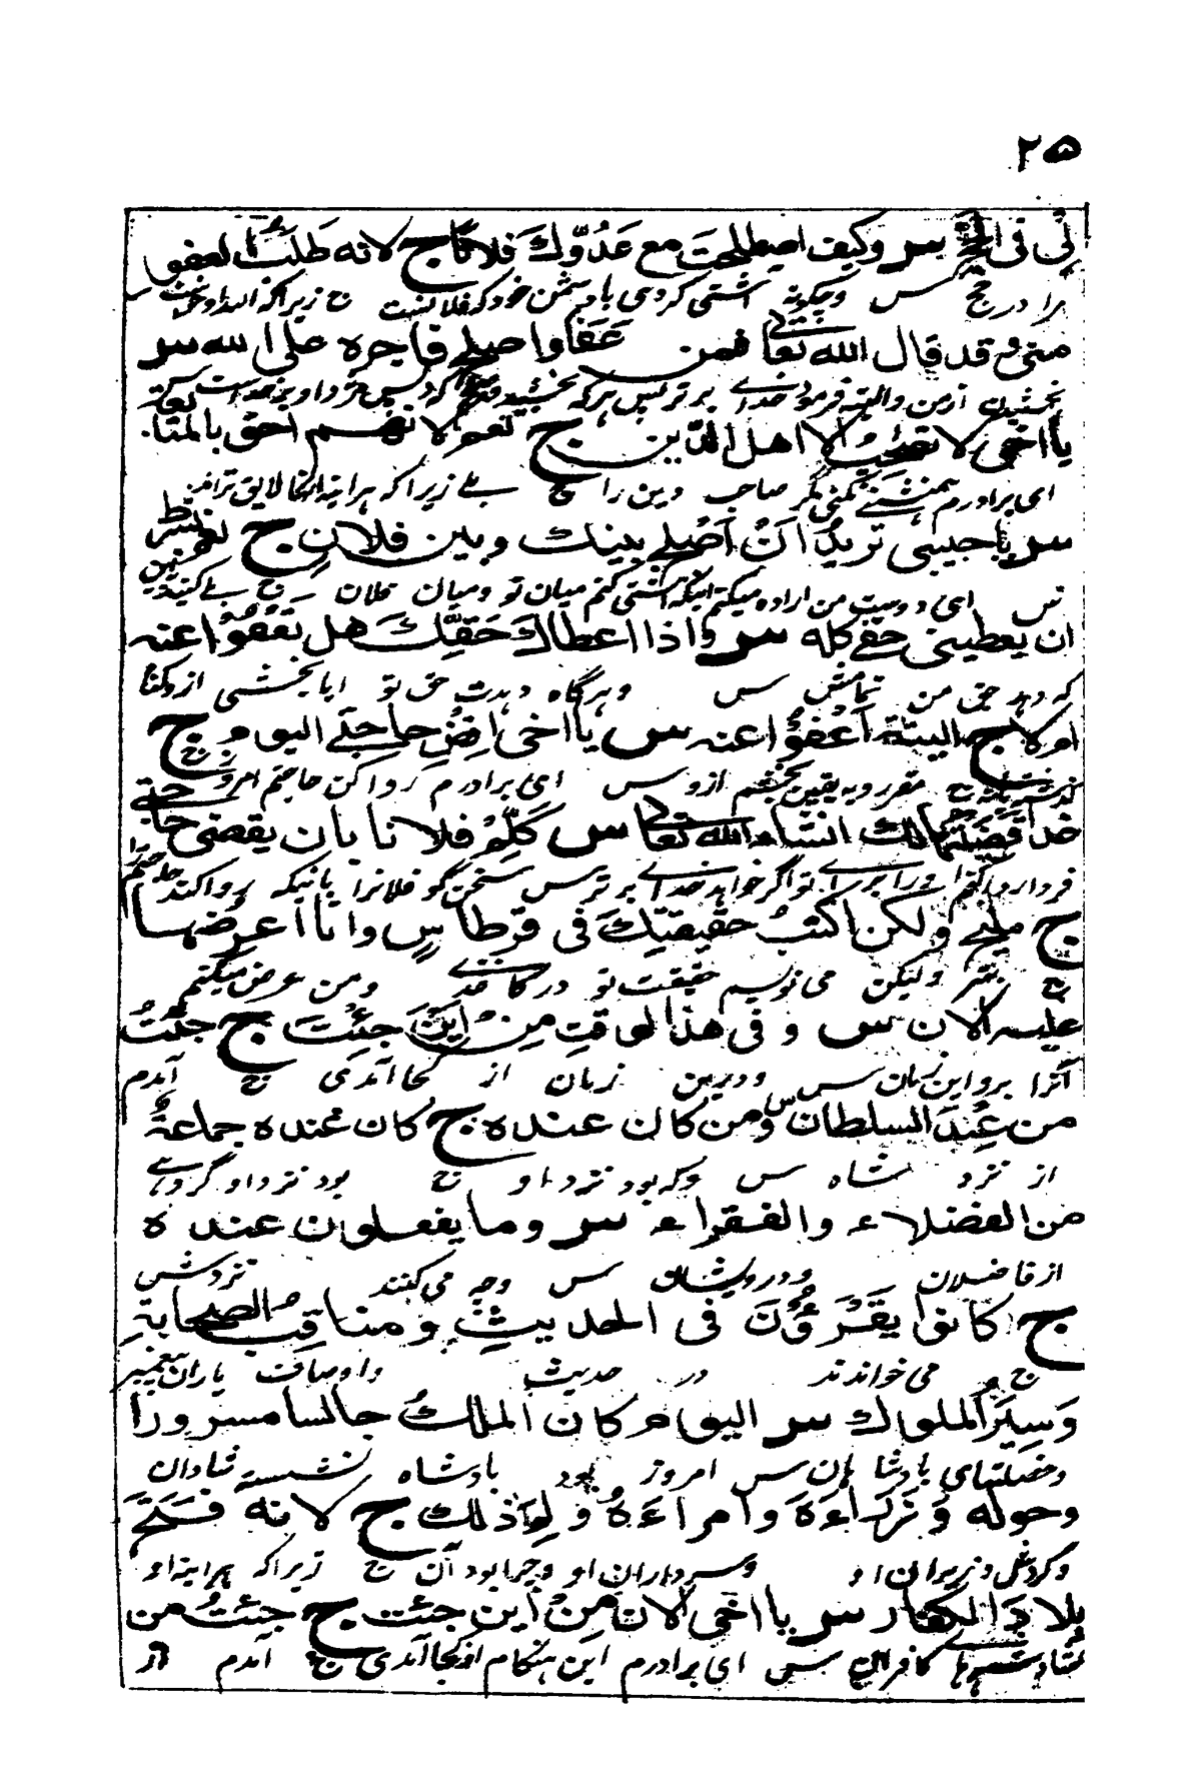 ۲۵
لی فی الحج س وکیف اصطلحت مع عَدُوِّكَ فلان ج لانه طَلَبَ العفو
مرا در حج س وچگونه آشتی کردی با دشمن خود که فلانست ج زیراکه
منی و قد قال الله تعالی فمن عَفَا واصلح فاجره علی الله س
بخشیدن از من والبته فرمود خدای برتر پس هرکه بخشید
یا اخی لا الا اهل الدین ج نعم لانهم احق بالمتا
ای برادرم همنشینی مکنی مگر صاحب دین را ج بلے زیراکه
س یا حبیبی تریدُ اَنْ اَصْلح بینك وبین فلانٍ ج نعم بشرط
س ای دوست من اراده میکنم اینکه آشتی کنم میان تو ومیان فلان ج بلے
ان یعطینی حقی کله س واذا اعطاك حَقَّكَ هل تَعْفُوْا عنه
که دهد حق من تمامش س وهرگاه دهدت حق تو ایا بخشی ازو
ام لا ج البتة اَعْفُوْا عنه س یا اخی اقضِ حاجتی الیوم ج
ج مقرر وبه یقین بخشم ازو س ای برادرم روا کن حاجتم امروز ج
لك انشاء الله تعالی س کَلِّمْ فلانا بان یقضی حاجتی
فردا تو اگر خواهد خدای برتر س سخن گو فلانرا بانیکه روا کند حاجتم را
ج ملیح ولکن اکتب حقیقتكَ فی قرطاسٍ وانا اعرضها
ج بهتر ولیکن می نویسم حقیقت تو در کاغذے ومن عرض میکنم
علیه الان س و فی هذا الوقتِ مِنْ اَیْنَ جِئْتَ ج جِئْتُ
آنرا برو این زمان س ودرین زمان از کجا آمدی ج آمدم
من عِنْدَ السلطان س ومن کان عنده ج کان عنده جماعةٌ
از نزد شاه س وکه بود نزد او ج بود نزد او گروهے
من الفضلاء والفقراء س وما یفعلون عنده
از فاضلان ودرویشان س وچه می کنند نزدش
ج کانوا یَقْرَؤُنَ فی الحدیثِ ومناقِبِ الصحابةِ
ج می خواندند در حدیث واوصاف یاران پیغمبر
وَسِیَرِ الملوك س الیوم کان الملكُ جالسا مسرورا
وخصلتهای بادشاهان س امروز بود بادشاه نشسته شادان
وحوله وُزَرَاءَهُ وامراءَهُ وَلِمَاذلك ج لانه فَتَحَ
وگردش وزیران او وسرداران او وچرا بود آن ج زیراکه هراینه او
بلادَ الکفار س یا اخی الان مِنْ این جئت ج جئتُ من
کشاد شهرها کافران س ای برادرم این هنگام از کجا آمدی ج آمدم از